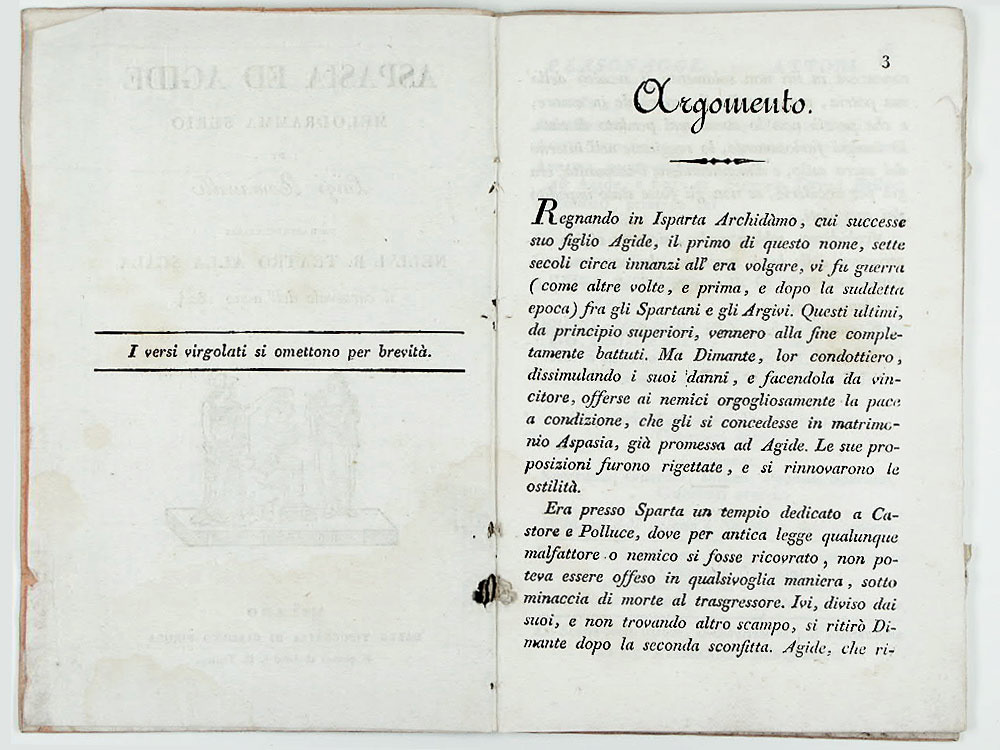 I versi virgolati si omettono per brevità.
3
Argomento.
Regnando in Isparta Archidàmo, cui successe
suo figlio Agide, il primo di questo nome, sette
secoli circa innanzi all' era volgare, vi fu guerra
(come altre volte, e prima, e dopo la suddetta
epoca) fra gli Spartani e gli Argivi. Questi ultimi,
da principio superiori, vennero alla fine comple-
tamente battuti. Ma Dimante, lor condottiero,
dissimulando i suoi danni, e facendola da vin-
citore, offerse ai nemici orgogliosamente la pace
a condizione, che gli si concedesse in matrimo-
nio Aspasia, già promessa ad Agide. Le sue pro-
posizioni furono rigettate, e si rinnovarono le
ostilità.
Era presso Sparta un tempio dedicato a Ca-
store e Polluce, dove per antica legge qualunque
malfattore o nemico si fosse ricovrato, non po-
teva essere offeso in qualsivoglia maniera, sotto
minaccia di morte al trasgressore. Ivi, diviso dai
suoi, e non trovando altro scampo, si ritirò Di-
mante dopo la seconda sconfitta. Agide, che ri-